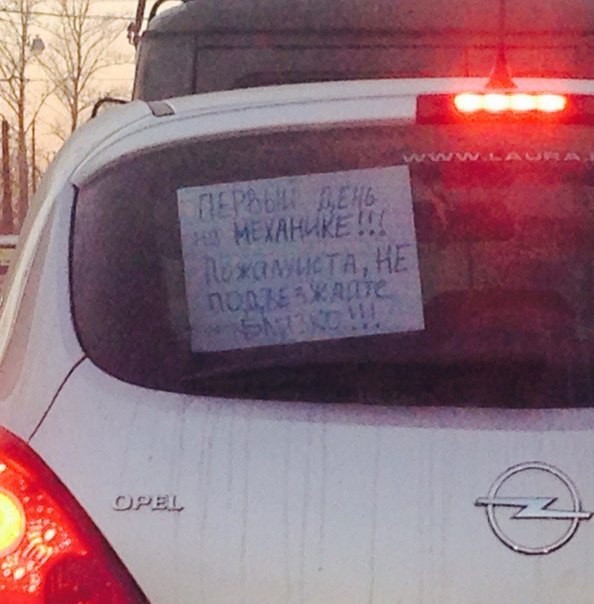 WWW.LAURA.
ПЕРВЫЙ ДЕНЬ
НА МЕХАНИКЕ!!!
ПОЖАЛУЙСТА, НЕ
ПОДЪЕЗЖАЙТЕ
БЛИЗКО!!!
OPEL